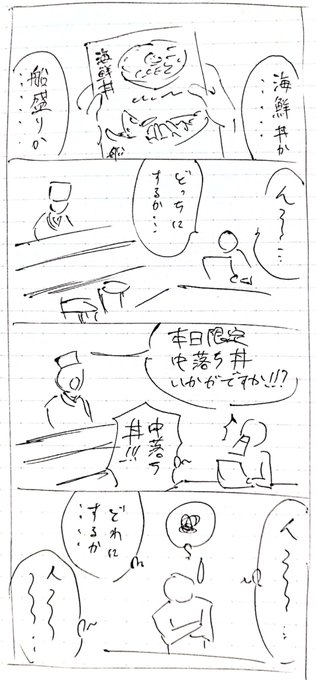 海鮮丼か
……
海鮮丼
船
船盛りか
……
ん〜〜……
どっちに
するか…
本日限定
中落ち丼
いかがですか!!?
中落ち
丼!!
ん〜〜〜…
どれに
するか
……
ん〜〜〜
〜〜〜…